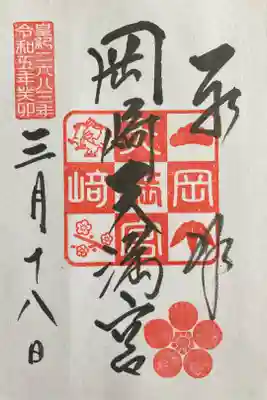 奉拝
岡﨑天満宮
岡﨑
天満宮
皇紀二六八三年
令和五年癸卯
三月十八日